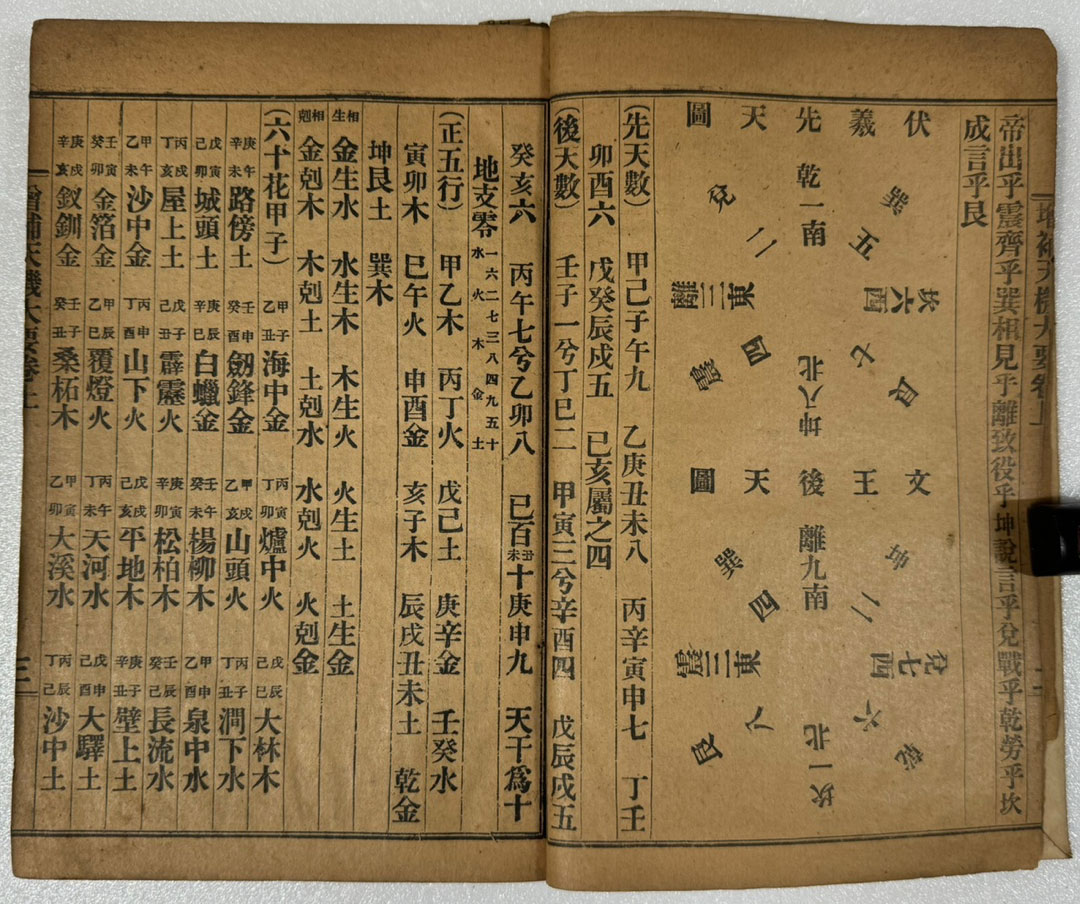 增補天機大要卷上
帝出乎震齊乎巽相見乎離致役乎坤說言乎兌戰乎乾勞乎坎
成言乎艮
伏羲先天圖
乾一南
兌二
離三東
震四
巽五
坎六西
艮七
坤八北
文王後天圖
離九南
坤二
兌七西
乾六
坎一北
艮八
震三東
巽四
(先天數) 甲己子午九 乙庚丑未八 丙辛寅申七 丁壬
卯酉六 戊癸辰戌五 已亥屬之四
(後天數) 壬子一兮丁巳二 甲寅三兮辛酉四 戊辰戌五
癸亥六 丙午七兮乙卯八 已百丑未十庚申九 天干爲十
地支零 一六水 二七火 三八木 四九金 五十土
(正五行) 甲乙木 丙丁火 戊己土 庚辛金 壬癸水
寅卯木 巳午火 申酉金 亥子木 辰戌丑未土 乾金
坤艮土 巽木
相生 金生水 水生木 木生火 火生土 土生金
相剋 金剋木 木剋土 土剋水 水剋火 火剋金
(六十花甲子) 甲子乙丑海中金 丙寅丁卯爐中火 戊辰己巳大林木
庚午辛未路傍土 壬申癸酉劒鋒金 甲戌乙亥山頭火 丙子丁丑澗下水
戊寅己卯城頭土 庚辰辛巳白蠟金 壬午癸未楊柳木 甲申乙酉泉中水
丙戌丁亥屋上土 戊子己丑霹靂火 庚寅辛卯松柏木 壬辰癸巳長流水
甲午乙未沙中金 丙申丁酉山下火 戊戌己亥平地木 庚子辛丑壁上土
壬寅癸卯金箔金 甲辰乙巳覆燈火 丙午丁未天河水 戊申己酉大驛土
庚戌辛亥釵釧金 壬子癸丑桑柘木 甲寅乙卯大溪水 丙辰丁巳沙中土
增補天機大要卷上 三